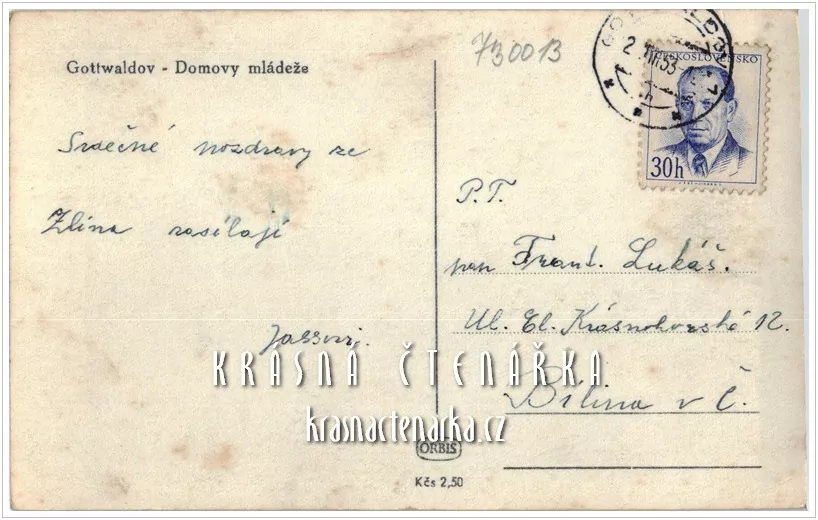 730013
Gottwaldov - Domovy mládeže
ČESKOSLOVENSKO
30h
Srdečné pozdravy ze
Zlína zasílají
P.T.
pan Frant. Lukáš.
Ul. El. Krásnohorské 12.
Bílina v Č.
KRÁSNÁ ČTENÁŘKA
krasnactenarka.cz
ORBIS
Kčs 2,50